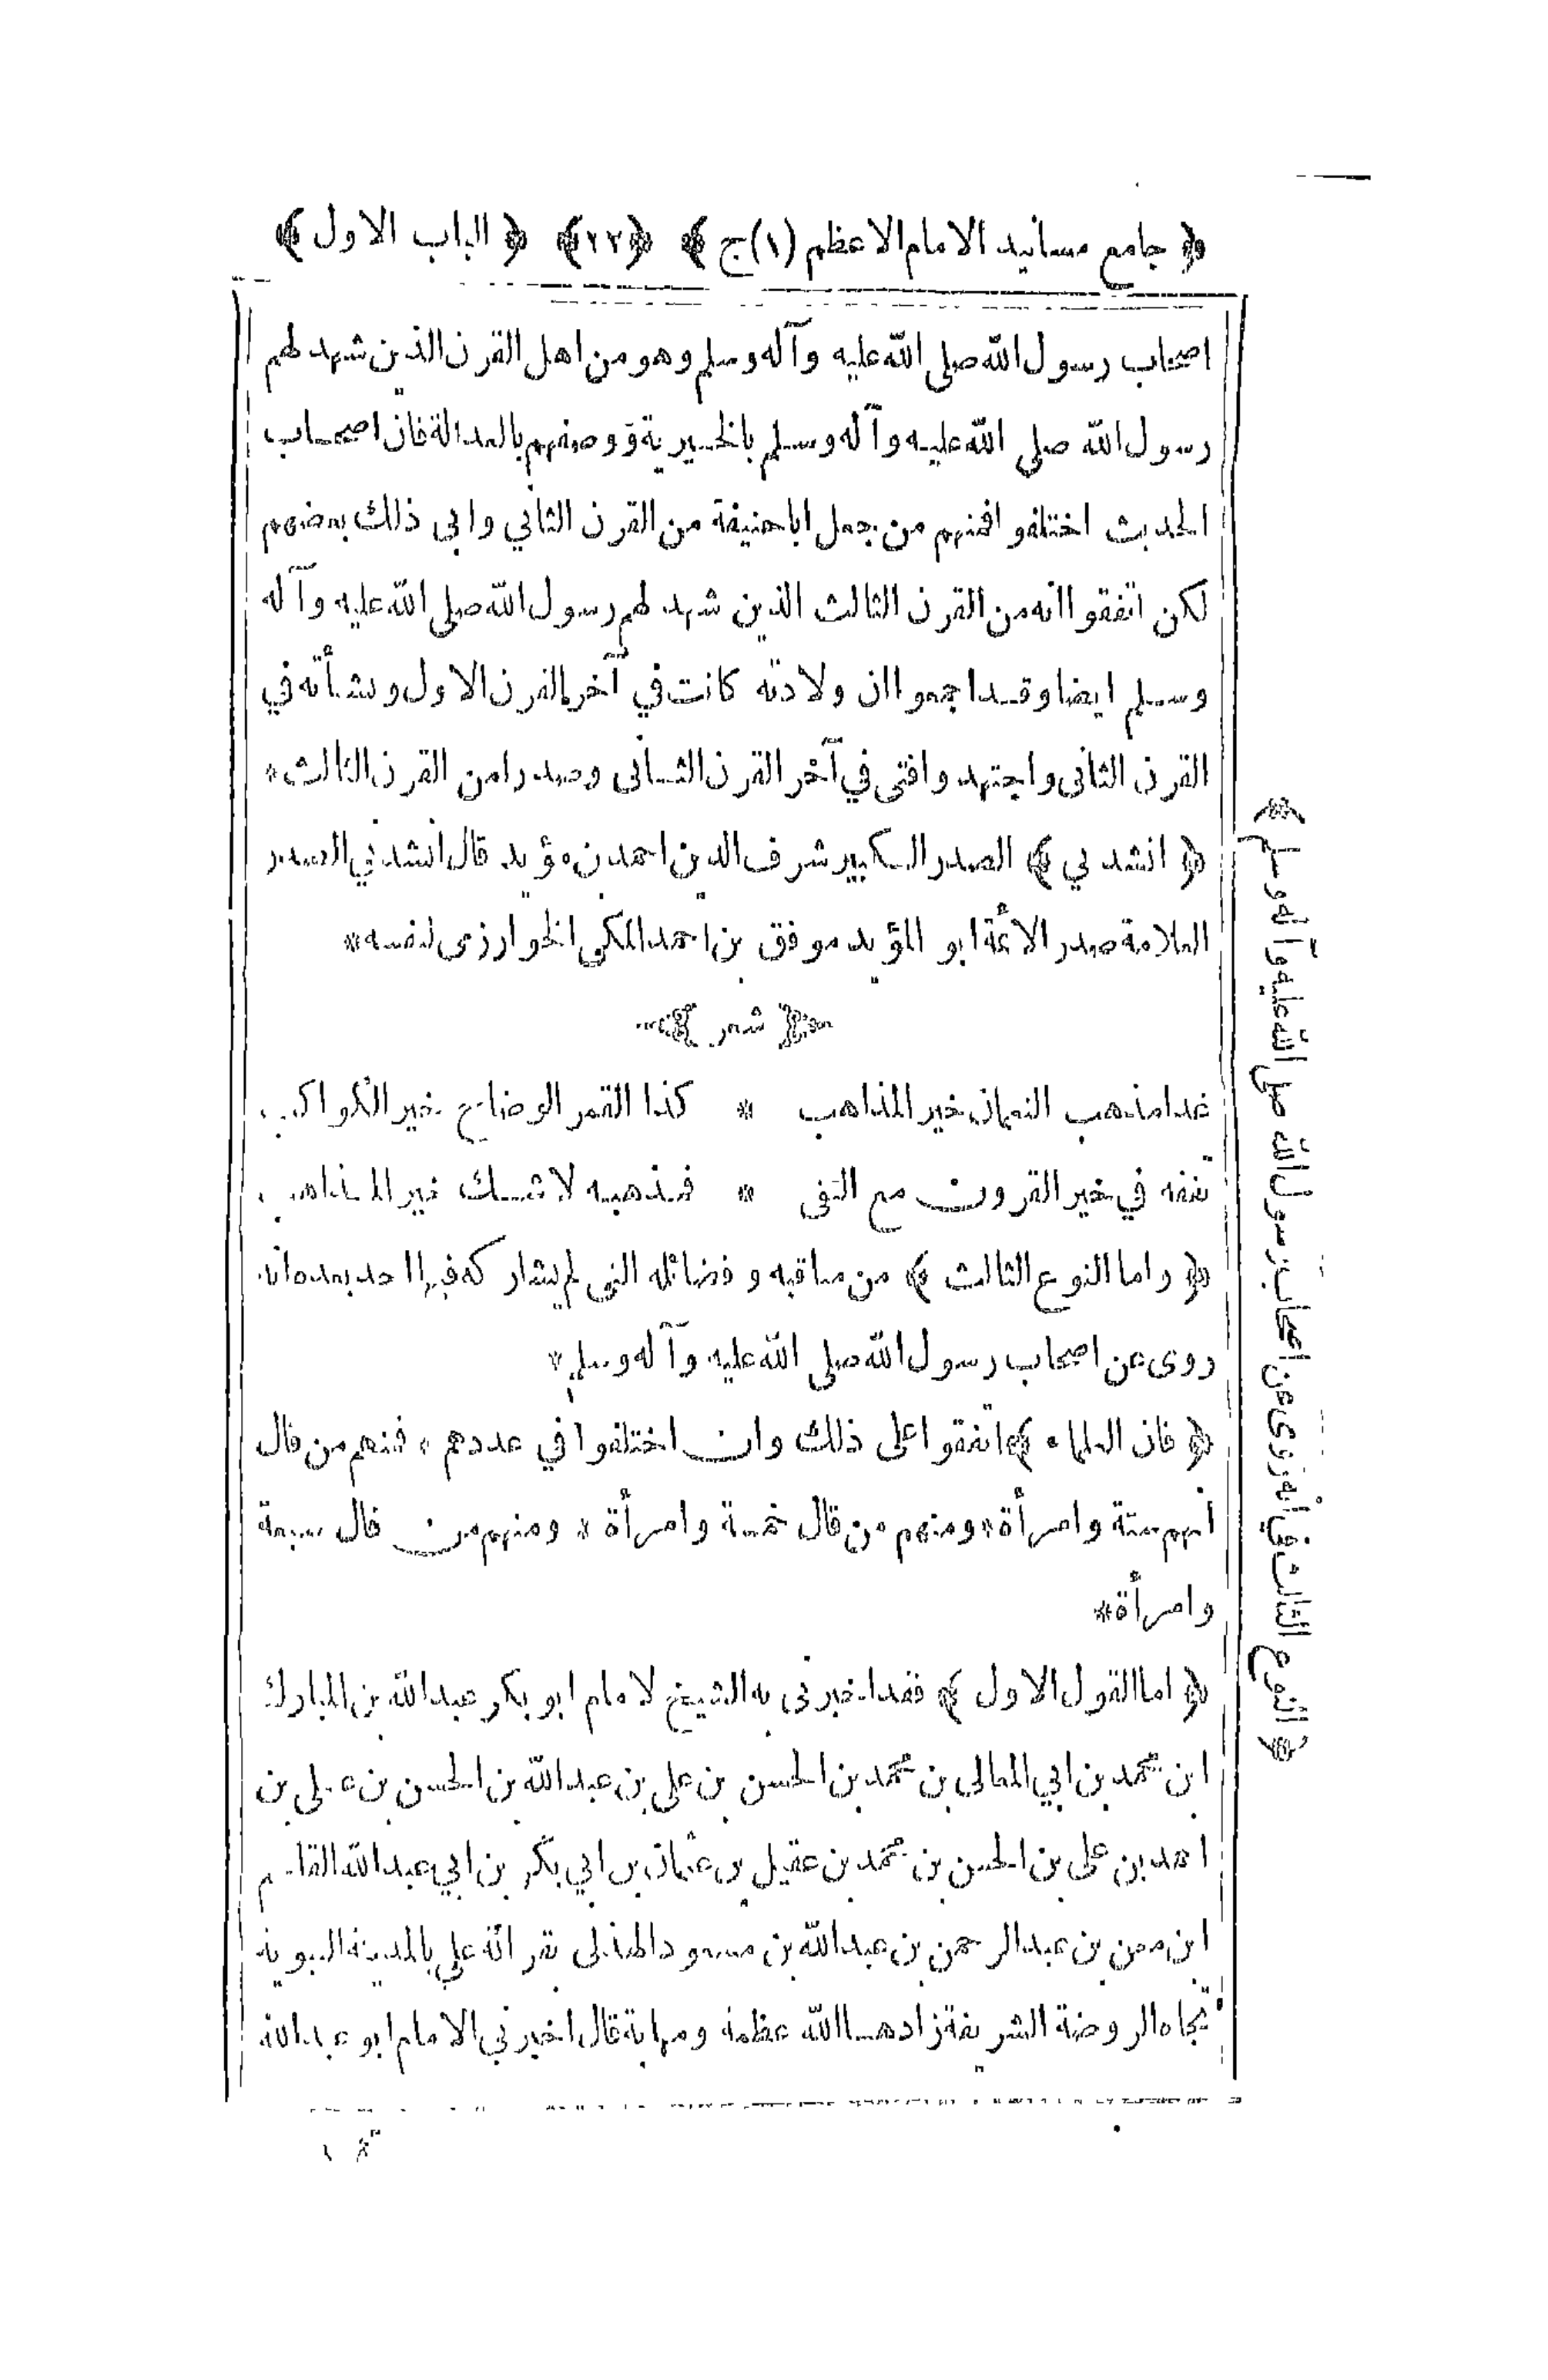 ﴿ جامع مسانيد الامام الاعظم (١) ج ﴾ ﴿٢٢﴾ ﴿ الباب الاول ﴾
اصحاب رسول الله صلى الله عليه وآله وسلم وهو من اهل القرن الذين شهد لهم
رسول الله صلى الله عليه وآله وسلم بالخيرية ووصفهم بالعدالة فان اصحاب
الحديث اختلفوا فمنهم من جعل اباحنيفة من القرن الثاني وابى ذلك بعضهم
لكن اتفقوا انه من القرن الثالث الذين شهد لهم رسول الله صلى الله عليه وآله
وسلم ايضا وقد اجمعوا ان ولادته كانت في آخر القرن الاول ونشأته في
القرن الثانى واجتهد وافتى في آخر القرن الثانى وصدرا من القرن الثالث*
﴿ انشدني ﴾ الصدر الكبير شرف الدين احمد بن مؤيد قال انشدني الصدر
العلامة صدر الائمة ابو المؤيد موفق بن احمد المكى الخوارزمى لنفسه*
﴿ شعر ﴾
غدا مذهب النعمان خير المذاهب * كذا القمر الوضاح خير الكواكب
تفقه في خير القرون مع التقى * فمذهبه لا شك خير المذاهب
﴿ واما النوع الثالث ﴾ من مناقبه وفضائله التى لم يشاركه فيها احد بعده انه
روى عن اصحاب رسول الله صلى الله عليه وآله وسلم*
﴿ فان العلماء ﴾ اتفقوا على ذلك وان اختلفوا في عددهم * فمنهم من قال
انهم ستة وامرأة * ومنهم من قال خمسة وامرأة * ومنهم من قال سبعة
وامرأة*
﴿ اما القول الاول ﴾ فقد اخبرنى به الشيخ لامام ابو بكر عبد الله بن المبارك
ابن محمد بن ابي المعالى بن محمد بن الحسن بن على بن عبد الله بن الحسن بن على بن
احمد بن على بن الحسن بن محمد بن عقيل بن عثمان بن ابي بكر بن ابي عبد الله القاسم
ابن معن بن عبد الرحمن بن عبد الله بن مسعود الهذلى بقرائة علي بالمدينة النبوية
تجاه الروضة الشريفة زادها الله عظمة ومهابة قال اخبرني الامام ابو عبد الله
﴿ النوع الثالث في انه روى عن اصحاب رسول الله صلى الله عليه وآله وسلم ﴾